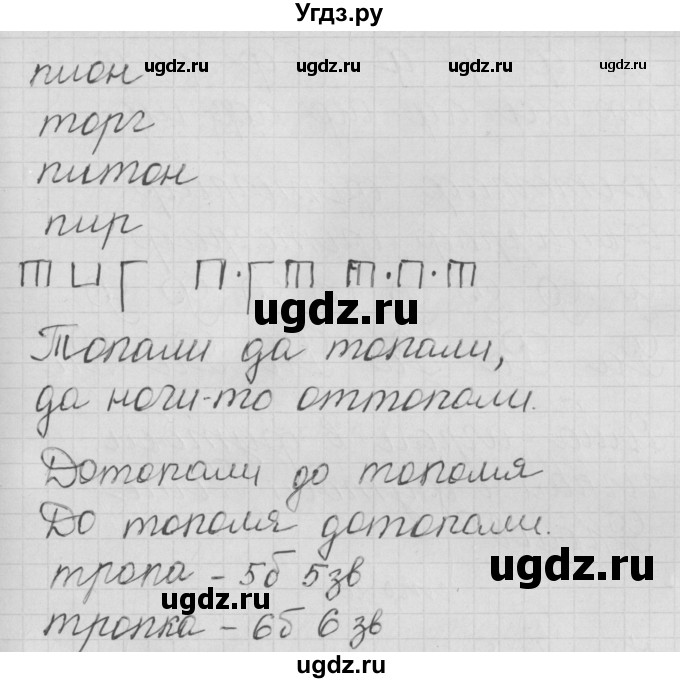 Угдз.ру
пион ugdz.ru ugdz.ru ugdz.ru
торг
питон
пир
Т Ц Г П·ГТ т·П·т
ugdz.ru
Топали да топали,
да ночи-то оттопали.
ugdz.ru
Дотопали до тополя
До тополя дотопали.
тропа - 5б 5зв ugdz.ru
ugdz.ru
тропка - 6б 6 зв
ugdz.ru